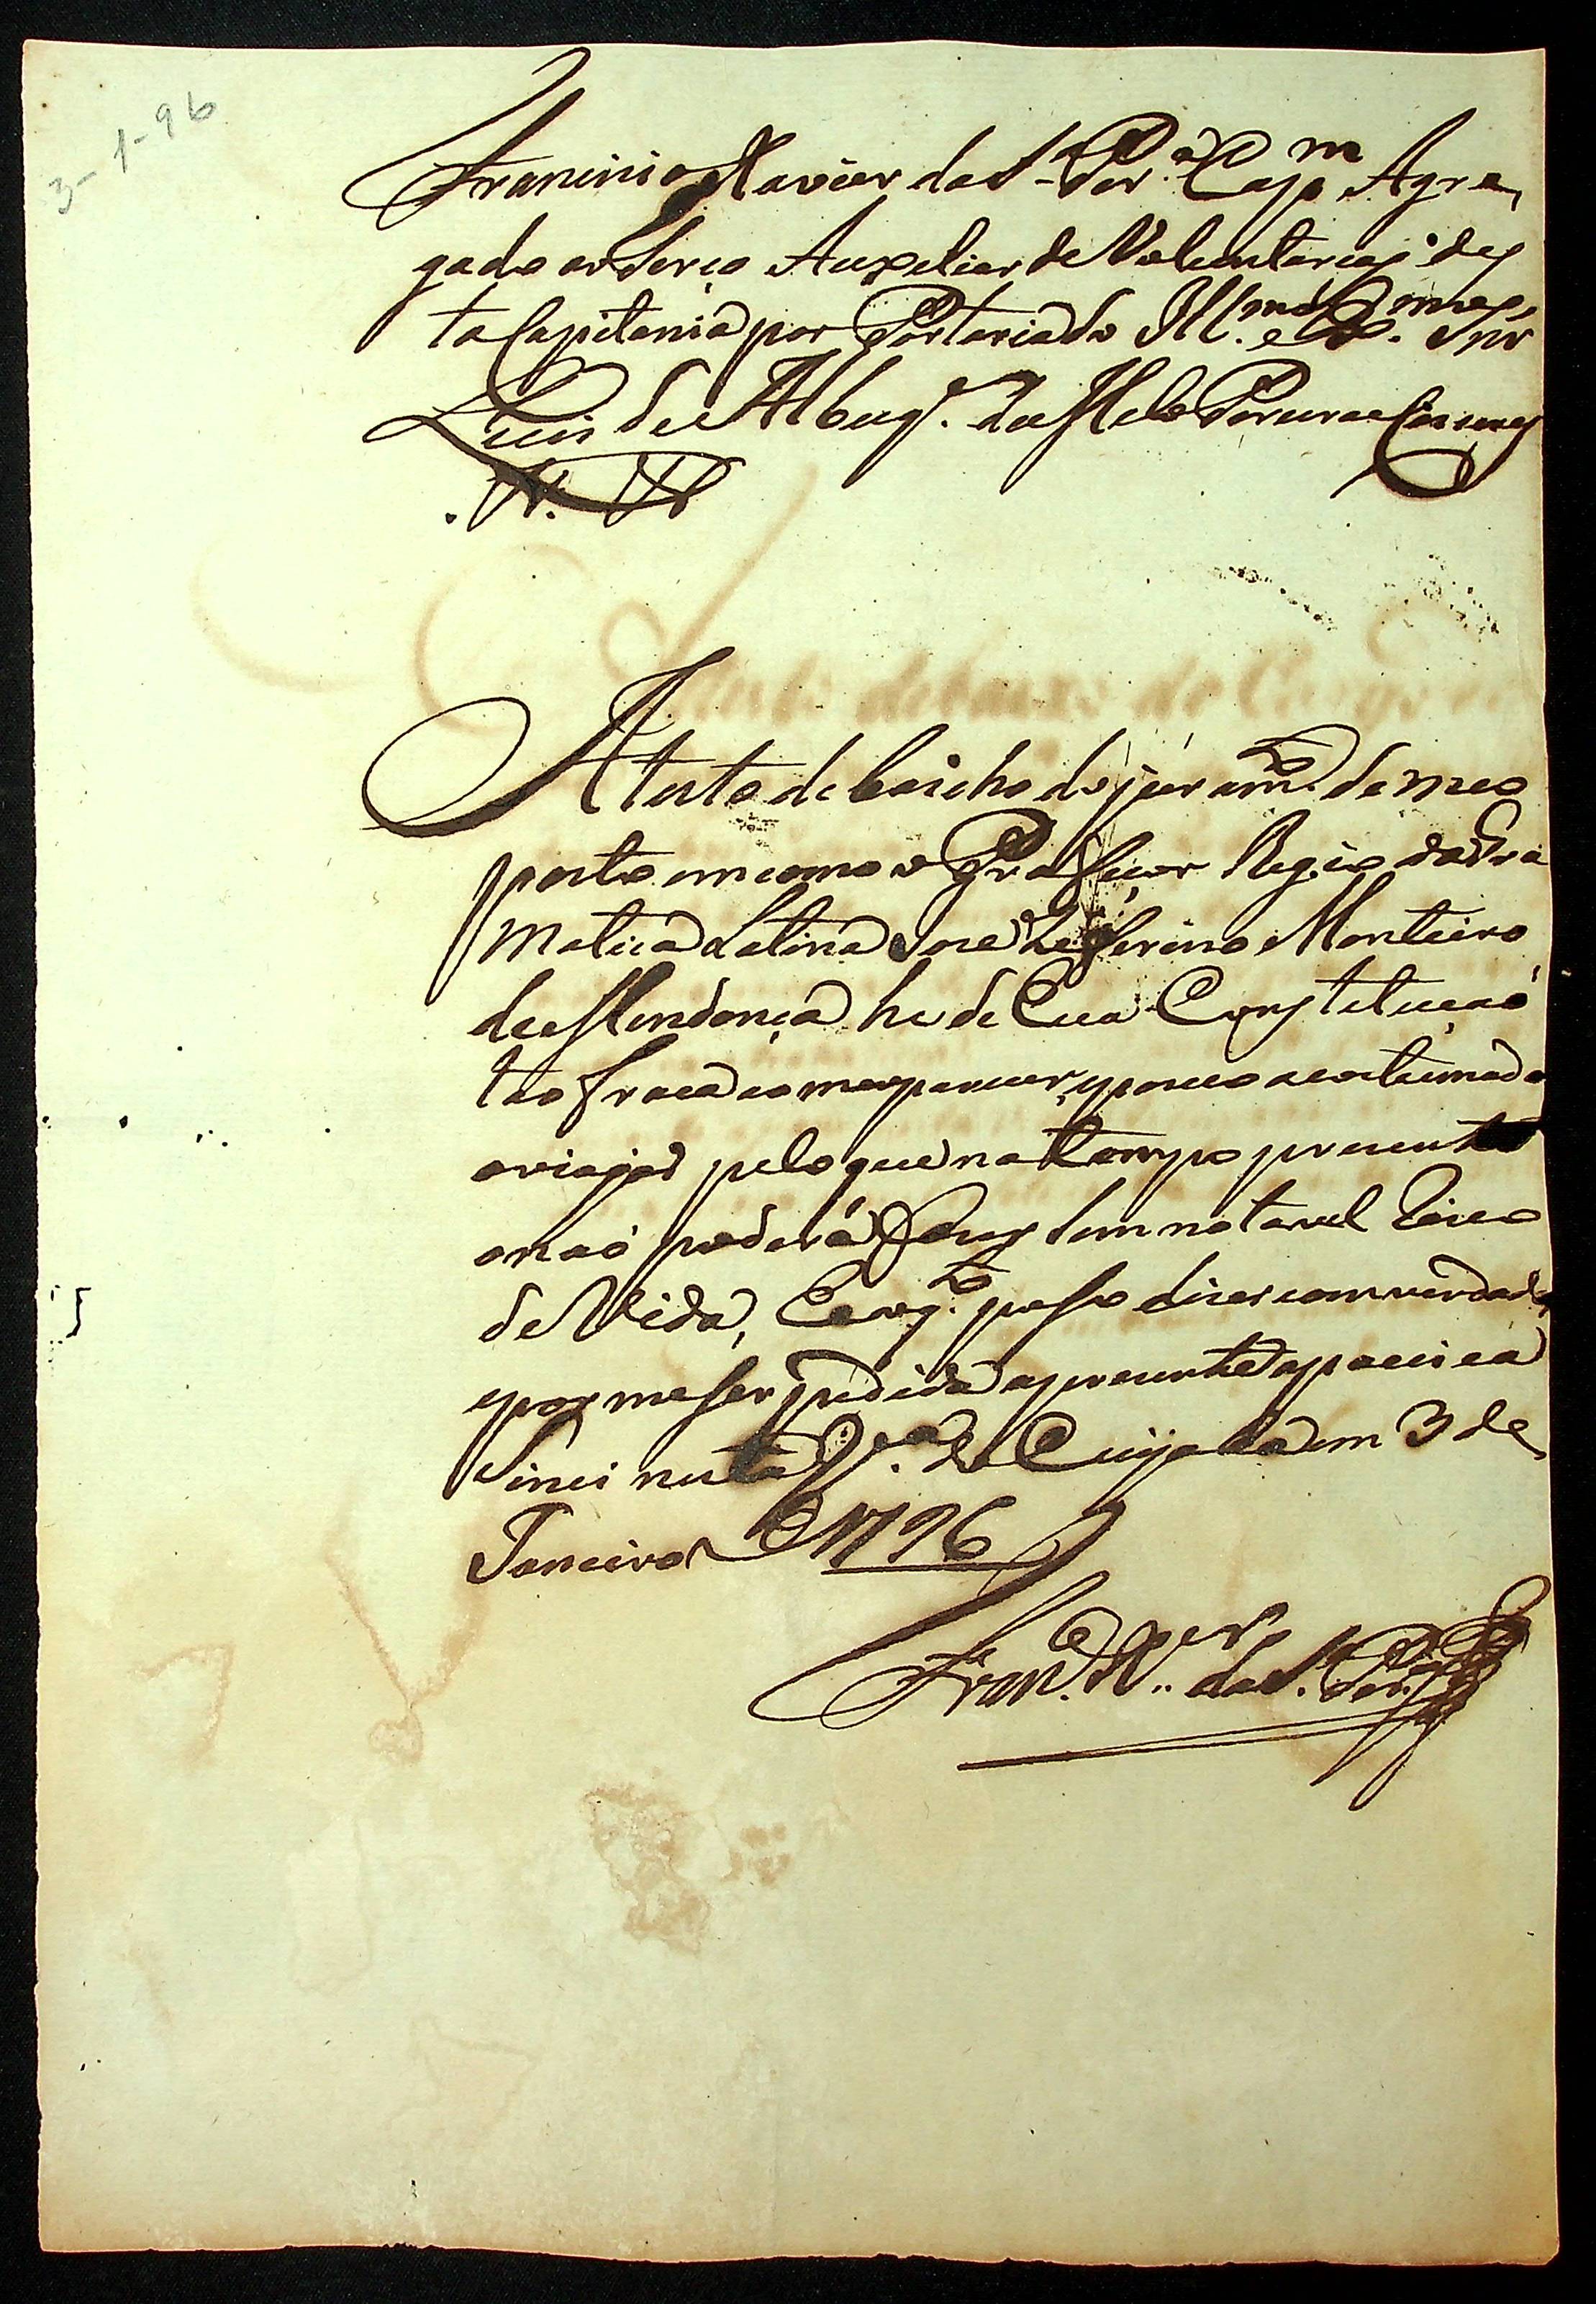 3-1-96
Francisco Xavier da S.ª Per.ª Capm Agre
gado ao Terço Auxeliar de Voluntarios des
ta Capitania por Portaria do Illmo. e Exmo. Snr
Luis de Albuqe. de Mello Pereira e Caceres
Atesto debaicho do juramto. de meo
posto em como o Professor Regio da Gra
matica Latina Joze Zeferino Monteiro
de Mendonça he de Cua Constetuição
tão fraca como parecer, e pouco acostumado
a viajar pelo que no tempo prezente
o não poderá fazer sem notavel Risco
de Vida, he oq.to posso dizer com verdade
e por me ser pedida a prezente a paceei e a
Sinei nesta Va. do Cuyaba em 3 de
Janeiro de 1796
Franco. Xer. da S.ª Per.ª